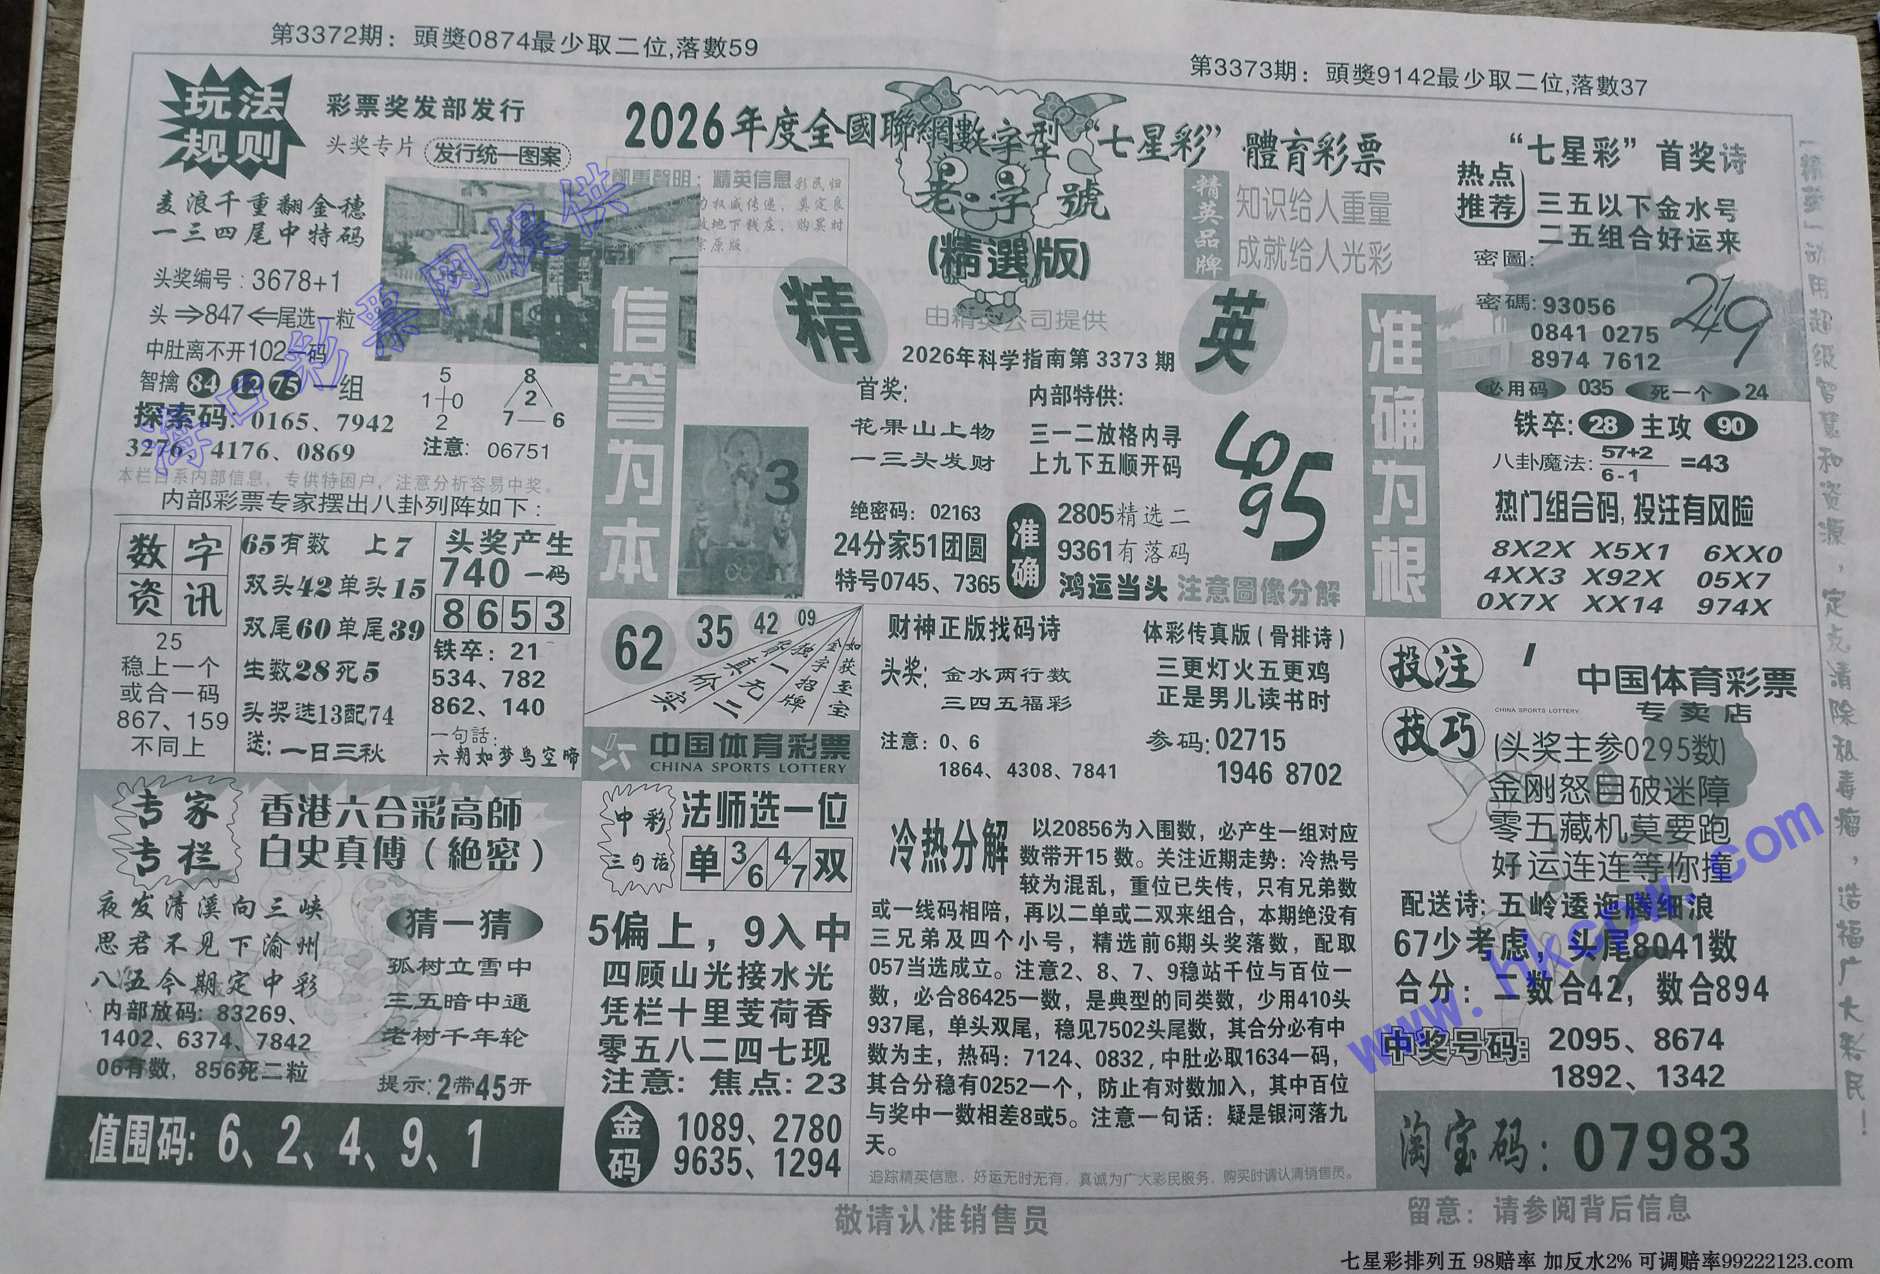 第3372期：頭獎0874最少取二位,落數59
第3373期：頭獎9142最少取二位,落數37
玩法
规则
彩票奖发部发行
头奖专片 发行统一图案
麦浪千重翻金穗
一三四尾中特码
头奖编号：3678+1
头⇒847⇐尾选一粒
中肚离不开102一码
智擒 84 12 75 一组
探索码：0165、7942
3276、4176、0869
5
1 0
2
8
2
7 6
注意：06751
本栏目系内部信息，专供特困户，注意分析容易中奖。
2026年度全國聯網數字型“七星彩”體育彩票
鄭重聲明：精英信息彩民归
老字號
(精選版)
由精英公司提供
精英品牌
知识给人重量
成就给人光彩
精
英
2026年科学指南第 3373 期
信誉为本
3
首奖:
花果山上物
一三头发财
内部特供:
三一二放格内寻
上九下五顺开码
4095
绝密码：02163
24分家51团圆
特号0745、7365
准确
2805精选二
9361有落码
鸿运当头 注意圖像分解
准确为根
“七星彩”首奖诗
热点
推荐
三五以下金水号
二五组合好运来
密圖:
密碼: 93056
0841 0275
8974 7612
219
必用码 035 死一个 24
铁卒: 28 主攻 90
八卦魔法: 57+2
6-1
=43
热门组合码,投注有风险
8X2X X5X1 6XX0
4XX3 X92X 05X7
0X7X XX14 974X
内部彩票专家摆出八卦列阵如下：
数字
资讯
25
稳上一个
或合一码
867、159
不同上
65有数 上7
双头42单头15
双尾60单尾39
生数28死5
头奖选13配74
送：一日三秋
头奖产生
740 一码
8 6 5 3
铁卒：21
534、782
862、140
一句話:
六朝如梦鸟空啼
62 35 42 09
如获至宝
金字招牌
独一
真
价
实
无二
中国体育彩票
CHINA SPORTS LOTTERY
财神正版找码诗
头奖:
金水两行数
三四五福彩
注意：0、6
1864、4308、7841
体彩传真版(骨排诗)
三更灯火五更鸡
正是男儿读书时
参码: 02715
1946 8702
投注
技巧
中国体育彩票
CHINA SPORTS LOTTERY
专卖店
(头奖主参0295数)
金刚怒目破迷障
零五藏机莫要跑
好运连连等你撞
配送诗：五岭逶迤腾细浪
67少考虑，头尾8041数
合分：二数合42，数合894
中奖号码: 2095、8674
1892、1342
淘宝码：07983
专家
专栏
香港六合彩高師
白史真傅(絶密)
夜发清溪向三峡
思君不见下渝州
八五今期定中彩
内部放码: 83269、
1402、6374、7842
06有数，856死二粒
猜一猜
孤树立雪中
三五暗中通
老树千年轮
提示: 2带45开
值围码: 6、2、4、9、1
中彩
三句话
法师选一位
单 3/6 4/7 双
5偏上，9入中
四顾山光接水光
凭栏十里芰荷香
零五八二四七现
注意：焦点：23
金码
1089、2780
9635、1294
冷热分解
以20856为入围数，必产生一组对应
数带开15数。关注近期走势：冷热号
较为混乱，重位已失传，只有兄弟数
或一线码相陪，再以二单或二双来组合，本期绝没有
三兄弟及四个小号，精选前6期头奖落数，配取
057当选成立。注意2、8、7、9稳站千位与百位一
数，必合86425一数，是典型的同类数，少用410头
937尾，单头双尾，稳见7502头尾数，其合分必有中
数为主，热码：7124、0832，中肚必取1634一码，
其合分稳有0252一个，防止有对数加入，其中百位
与奖中一数相差8或5。注意一句话：疑是银河落九
天。
追踪精英信息，好运无时无有，真诚为广大彩民服务，购买时请认清销售员。
敬请认准销售员
留意：请参阅背后信息
海口彩票网提供
www.hkcpw.com
七星彩排列五 98赔率 加反水2% 可调赔率99222123.com